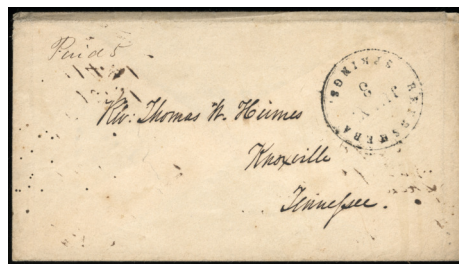 Paid 5
BEERSHEBA SPRINGS.
Rev: Thomas W. Humes
Knoxville
Tennessee.